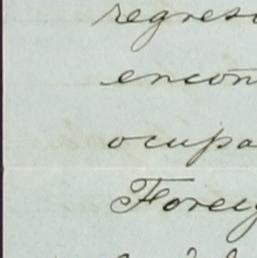 regreso
encon
ocupa
Foreig